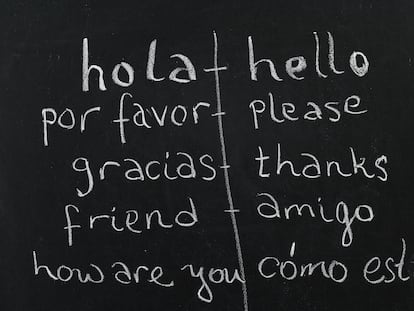 hola - hello
por favor - please
gracias - thanks
friend - amigo
how are you cómo est